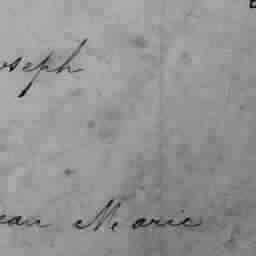 oseph
ean Marie